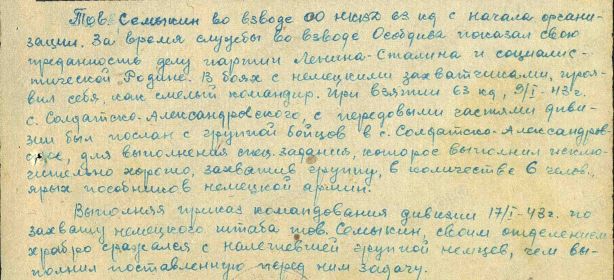 Тов. Семыкин во взводе ОО НКВД 63 кд с начала органи-
зации. За время службы во взводе Особдива показал свою
преданность делу партии Ленина-Сталина и социалис-
тической Родине. В боях с немецкими захватчиками, проя-
вил себя, как смелый командир. При взятии 63 кд, 9/I-43 г.
с. Солдатско-Александровского, с передовыми частями диви-
зии был послан с группой бойцов в с. Солдатско-Александров
ское, для выполнения спец. задания, которое выполнил исклю-
чительно хорошо, захватив группу, в количестве 6 челов.,
ярых пособников немецкой армии.
Выполняя приказ командования дивизии 17/I-43 г. по
захвату немецкого штаба тов. Семыкин, своим отделением
храбро сражался с налетевшей группой немцев, чем вы-
полнил поставленную перед ним задачу.